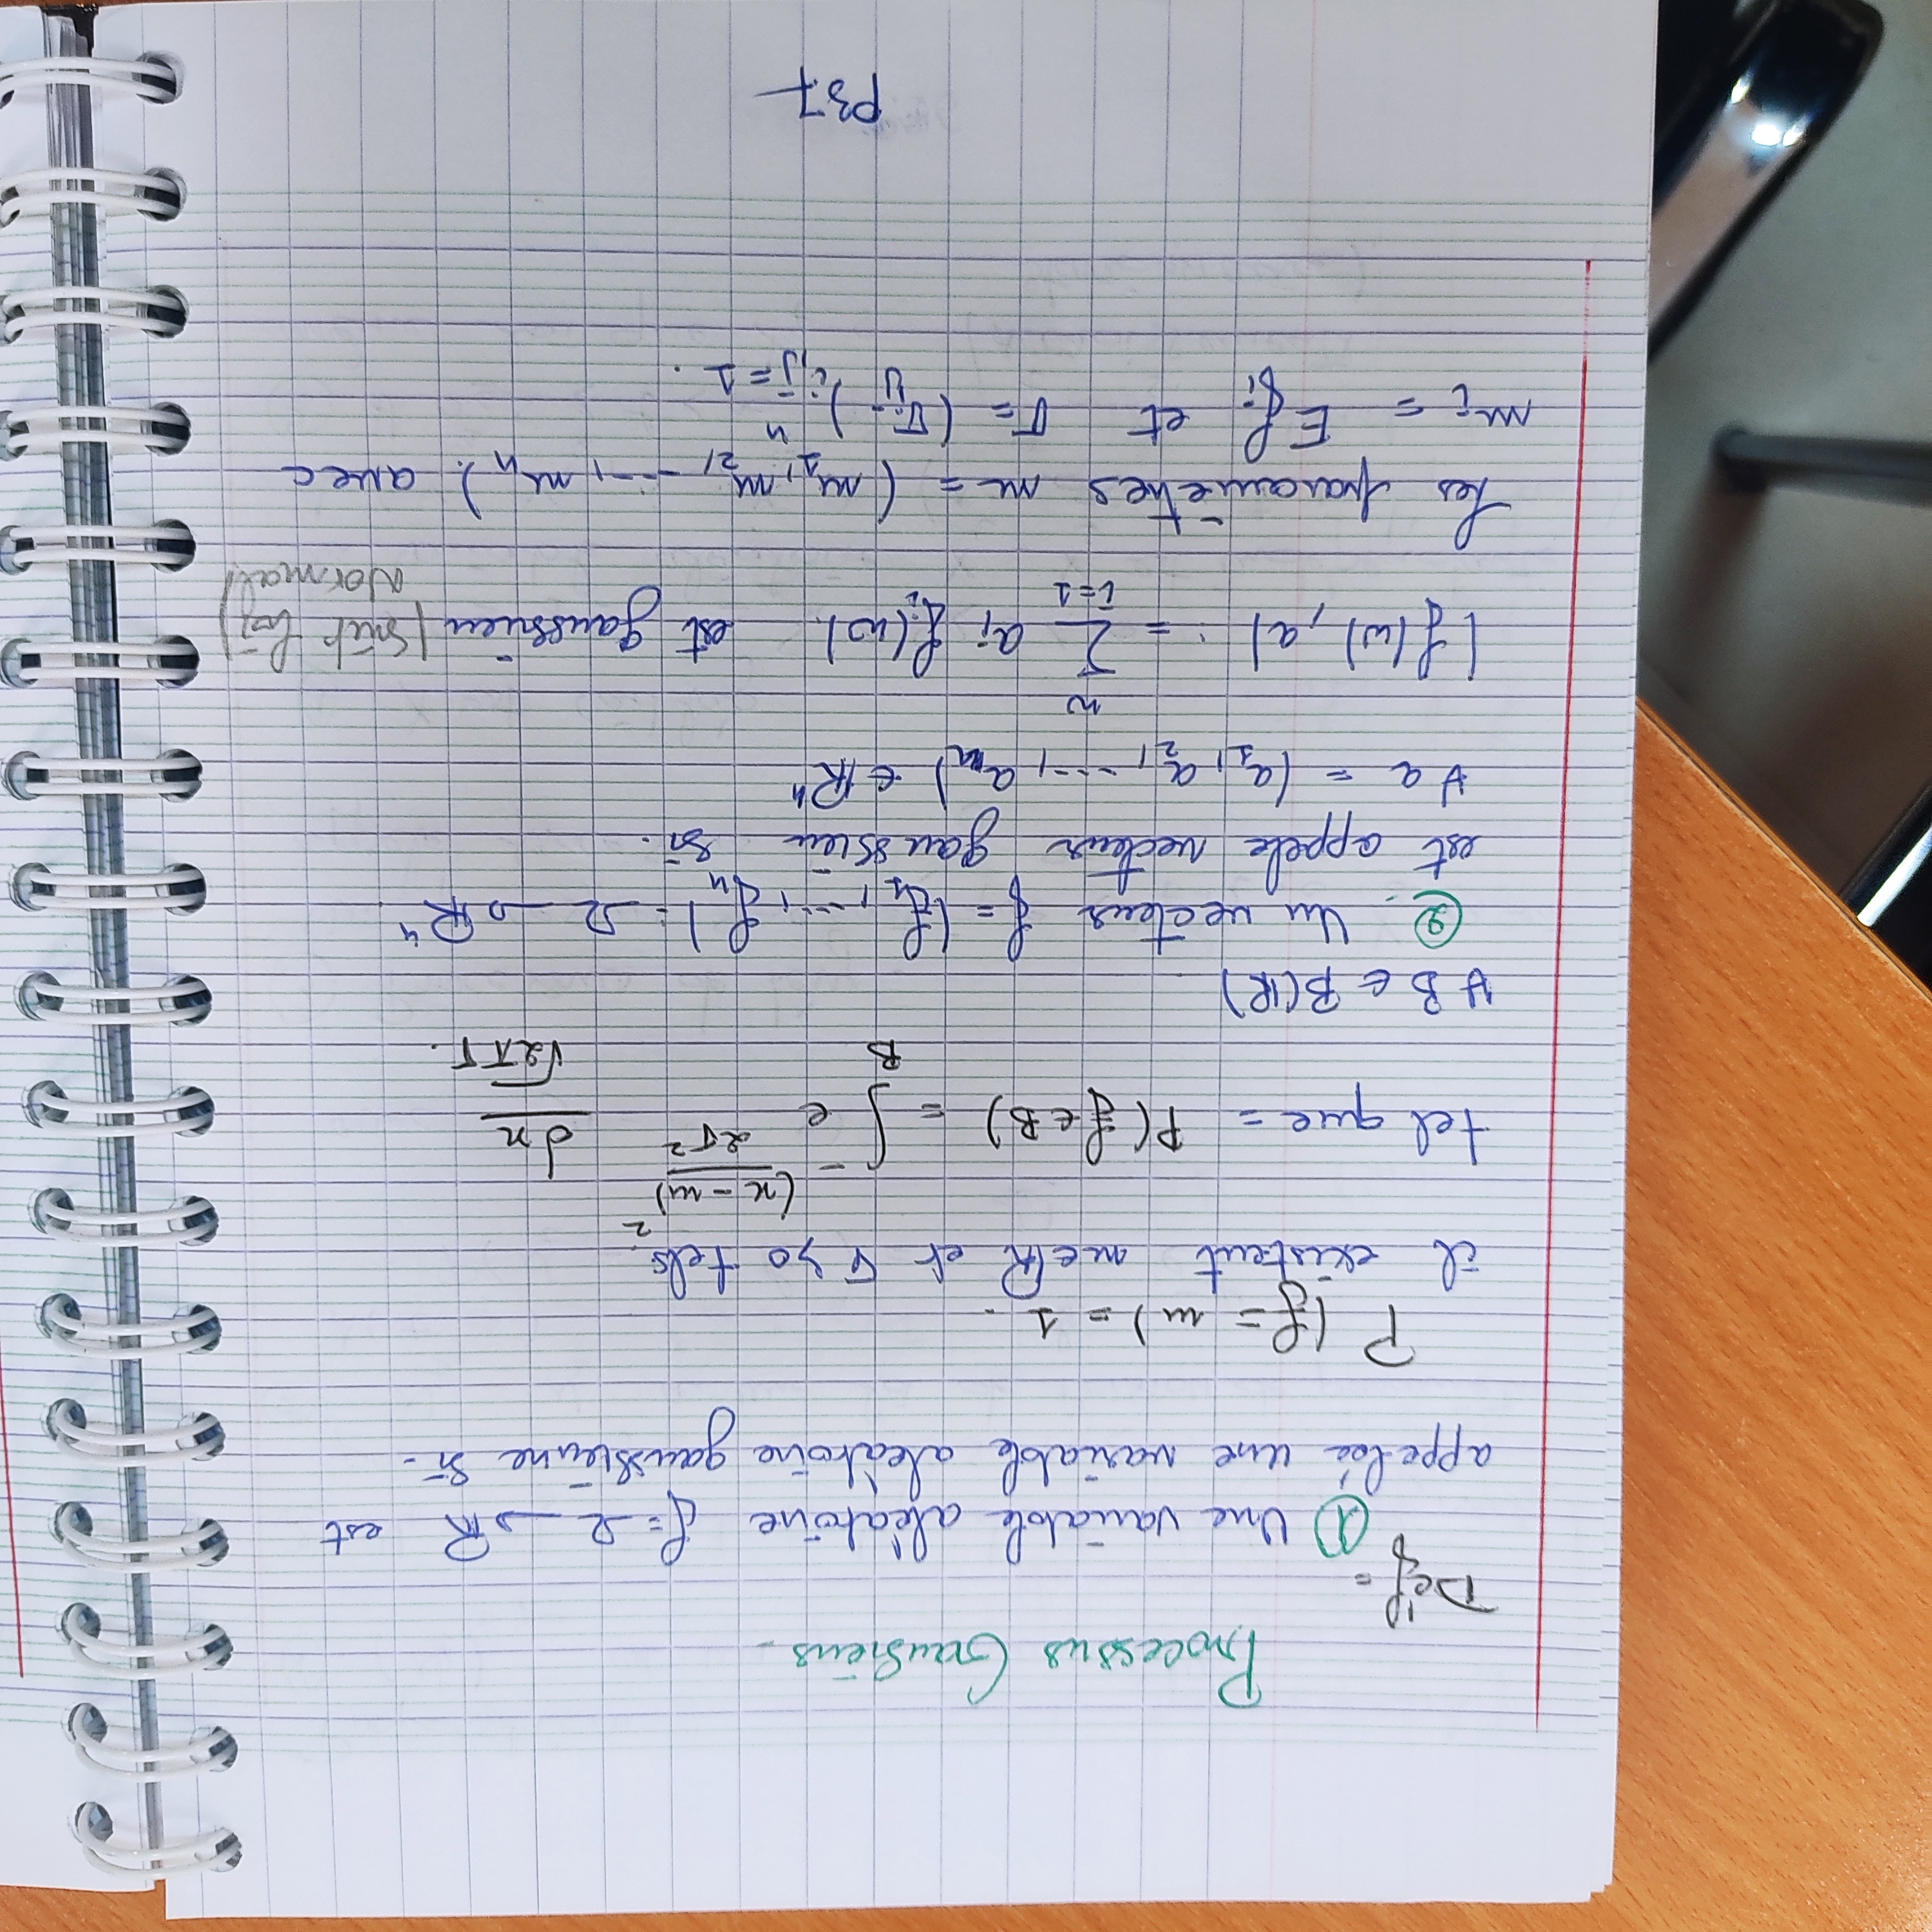 Processus Gausiens.
Déf =
① Une variable aléatoire f = Ω → ℝ est
appelée une variable aléatoire gaussienne si.
P (f = m) = 1.
il existent m ∈ ℝ et σ > 0 tels.
tel que = P(f ∈ B) = ∫_B e^{-(x-m)^2/2σ^2} dx/√2π σ.
∀ B ∈ B(ℝ)
②. Un vecteur f = (f_1, ..., f_n) : Ω → ℝ^n.
est appele vecteur gaussien si.
∀ a = (a_1, a_2, ..., a_n) ∈ ℝ^n
(f(w), a) := ∑_{i=1}^{n} a_i f_i(w). est gaussien (suit loi
Normal)
Les paramètres m = (m_1, m_2, ..., m_n). avec
m_i = E f_i et σ = (σ_ij)_{i,j=1}^n.
P37